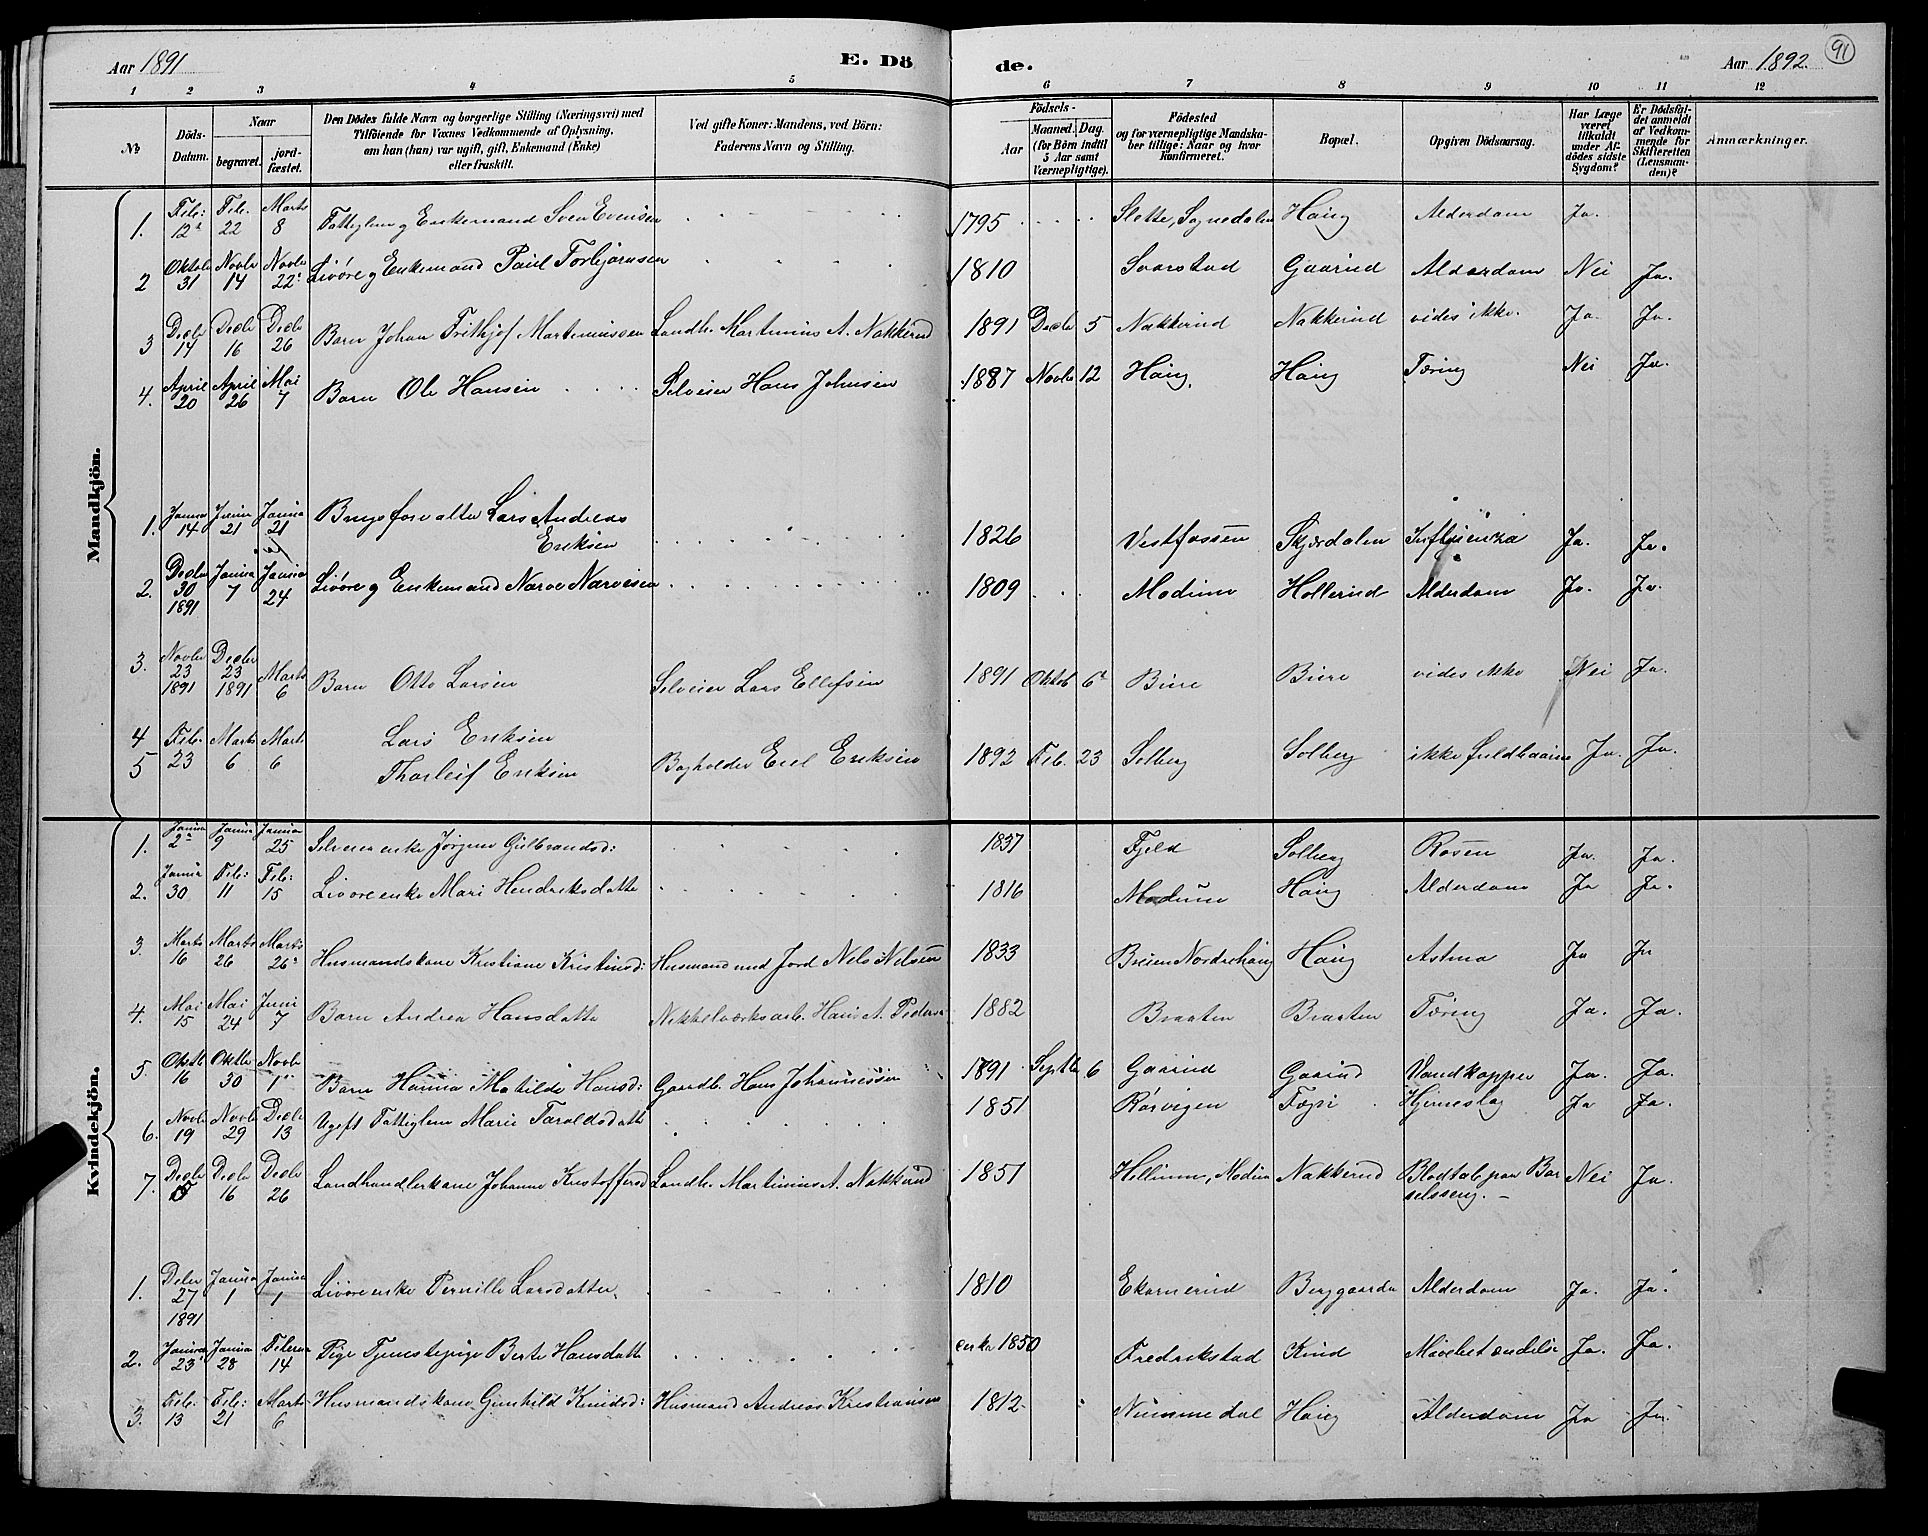 Aar 1891
E. Dö
de.
Aar 1892.
91
1 2 3 4 5 6 7 8 9 10 11 12
№
Döds-
Datum.
Naar
begravet.
jord-
fæstet.
Den Dödes fulde Navn og borgerlige Stilling (Næringsvei) med
Tilföiende for Voxnes Vedkommende af Oplysning,
om han (hun) var ugift, gift, Enkemand (Enke)
eller fraskilt.
Ved gifte Koner: Mandens, ved Börn:
Faderens Navn og Stilling.
Födsels-
Aar
Maaned. Dag.
(for Börn indtil
5 Aar samt
Værnepligtige).
Födested
og for værnepligtige Mandska-
ber tillige: Naar og hvor
konfirmeret.
Bopæl.
Opgiven Dödsaarsag.
Har Læge
været
tilkaldt
under Af-
dödes sidste
Sygdom?
Er Dödsfal-
det anmeldt
af Vedkom-
mende for
Skifteretten
(Lensman-
den)?
Anmærkninger.
Mandkjön.
1. Feb: 12 Feb. 22 Marts 8 Fattiglem g Enkemand Sven Evensen 1795 Slette, Sognedalen Haug Alderdom Ja.
2 Oktob 31 Novbr 14 Novbr 22 Livøre g Enkemand Paul Torbjørnsen 1810 Svarstad Gaarud Alderdom Nei Ja.
3 Decbr 14 Decbr 16 Decbr 26 Barn Johan Frithjof Martinussen Landh. Martinius A. Nakkerud 1891 Decbr 5 Nakkerud Nakkerud vides ikke. Ja. Ja.
4. April 20 April 26 Mai 7 Barn Ole Hansen Selveier Hans Johnsen 1887 Novbr 12 Haug. Haug Tæring Nei Ja.
1. Janua 14 Janua 21 Janua 21 Brugsforvalter Lars Andreas
Eriksen 1826 Vestfossen Skjærdalen Influenza Ja. Ja.
2. Decbr 30 1891 Janua 7 Janua 24 Livøre g Enkemand Narve Narvesen 1809 Modum Hollerud Alderdom Ja. Ja.
3. Novbr 23 1891 Decbr 23 1891 Marts 6 Barn Otto Larsen Selveier Lars Ellefsen 1891 Oktob 6 Bure Bure vides ikke Nei Ja.
4 Feb. 23 Marts 6 Marts 6 Lars Eriksen
5 Thorleif Eriksen Bogholder Emil Eriksen 1892 Feb. 23 Solberg Solberg ikke fuldbaarne Ja. Ja.
Kvindekjön.
1. Janua 2 Janua 9 Janua 25 Selveierenke Jørgine Gulbrandsd: 1837 Fjeld Solberg Rosen Ja. Ja.
2. Janua 30 Feb: 11 Feb: 15 Livøreenke Mari Hendriksdatter 1816 Modum Haug Alderdom Ja Ja.
3. Marts 16 Marts 26 Marts 26 Husmandskone Kristiane Kristiansd: Husmand med Jord Nels Nelsen 1833 Breien Norderhaug Haug Astma Ja Ja
4. Mai 15 Mai 24 Juni 7 Barn Andrea Hansdatter Nikkelværksarb. Hans A. Pedersen 1882 Braaten Braaten Tæring Ja. Ja.
5. Oktb 16 Oktbr 30 Novbr 1 Barn Hanna Matilde Hansd: Gaardb. Hans Johannessen 1891 Septbr 6 Gaarud Gaarud Vandkopper Ja. Ja.
6. Novbr 19 Novbr 29 Decbr 13 Ugift Fattiglem Marie Taraldsdatter 1851 Rørvigen Fægri Hjerneslag Ja Ja.
7. Decbr 5 Decbr 16 Decbr 26 Landhandlerkone Johanne Kristoffersd Landh. Martinius A. Nakkerud 1851 Hollunn, Modum Nakkerud Blodtab paa Bar
selsseng. Nei Ja.
1. Decbr 27 1891 Janua 1 Janua 1 Livøreenke Pernille Larsdatter. 1810 Ekornerud Berggaarden Alderdom Ja. Ja.
2. Janua 23 Janua 28 Februar 14 Pige Tjenestepige Berte Hansdatter cirka 1850 Fredrikstad Kind Mavebetændelse Ja. Ja.
3. Feb. 13 Feb: 21 Marts 6 Husmandskone Gunhild Knudsd: Husmand Andreas Kristiansen 1812 Nummedal Haug Alderdom Ja Ja.